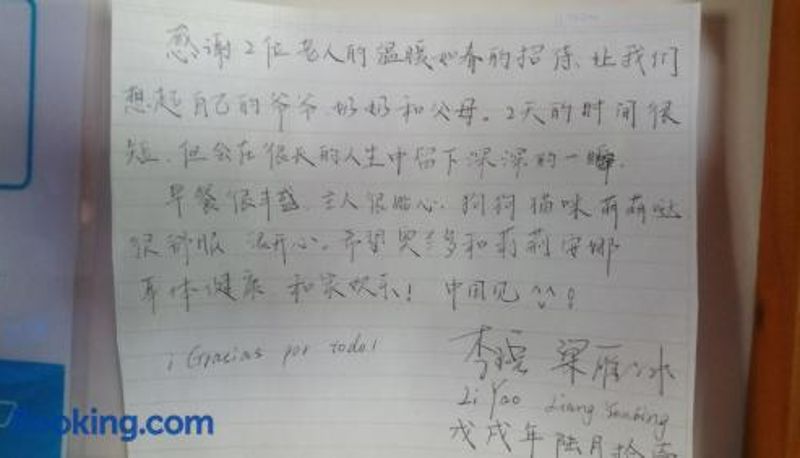 感谢2位老人的温暖如春的招待、让我们
想起自己的爷爷、奶奶和父母。2天的时间很
短、但会在很长的人生中留下深深的一瞬.
早餐很丰盛、主人很贴心、狗狗猫咪萌萌哒
很舒服 很开心。希望罗兰多和莉莉安娜
身体健康 和家欢乐! 中国见^^!
¡Gracias por todo!
李瑶 梁雁冰
Li Yao Liang Yanbing
戊戌年 陆月拾
Booking.com